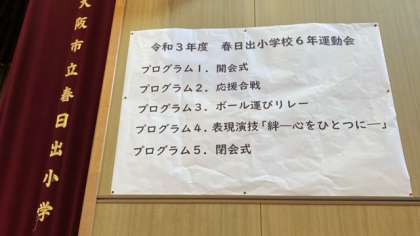 大阪市立春日出小学
令和3年度　春日出小学校6年運動会
プログラム1．開会式
プログラム2．応援合戦
プログラム3．ボール運びリレー
プログラム4．表現演技「絆―心をひとつに―」
プログラム5．閉会式